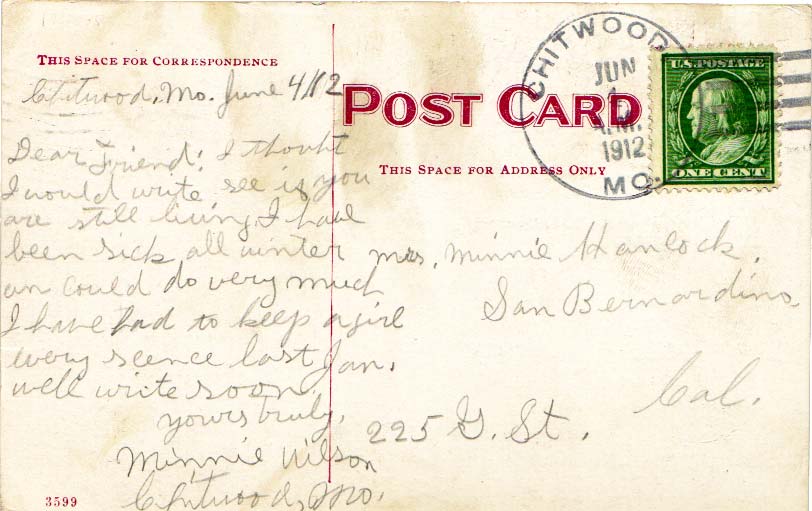 THIS SPACE FOR CORRESPONDENCE
Chitwood, Mo. June 4/12
POST CARD
THIS SPACE FOR ADDRESS ONLY
CHITWOOD
JUN
4
A.M.
1912
MO.
U.S. POSTAGE
ONE CENT
Dear Friend: I thouht
I would write see is you
are still living, I have
been sick all winter
an could do very much
I have had to keep a girl
every scence last Jan.
well write soon,
yours truly,
Minnie Wilson
Chitwood, Mo.
Mrs. Minnie Hancock,
San Bernardino,
Cal.
225 G. St.
3599